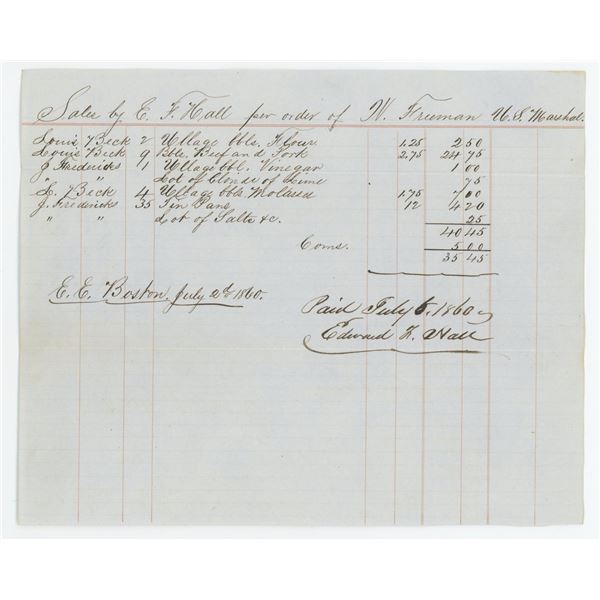 Sales by E. F. Hall per order of W. Freeman U.S. Marshal.
Louis Beck 2 Ullage bbls. Flour 1.25 2 50
Louis Beck 9 Bbls. Beef and Pork 2.75 24 75
J Fredericks 1 Ullage bbl. Vinegar 1 00
" " Lot of of Lime 75
L. Beck 4 Ullage bbls. Molases 1.75 7 00
J. Fredericks 35 Tin Pans 12 4 20
" " Lot of Salts &c. 25
40 45
Coms. 5 00
35 45
E. E. Boston, July 2d 1860.
Paid July 6. 1860
Edward F. Hall